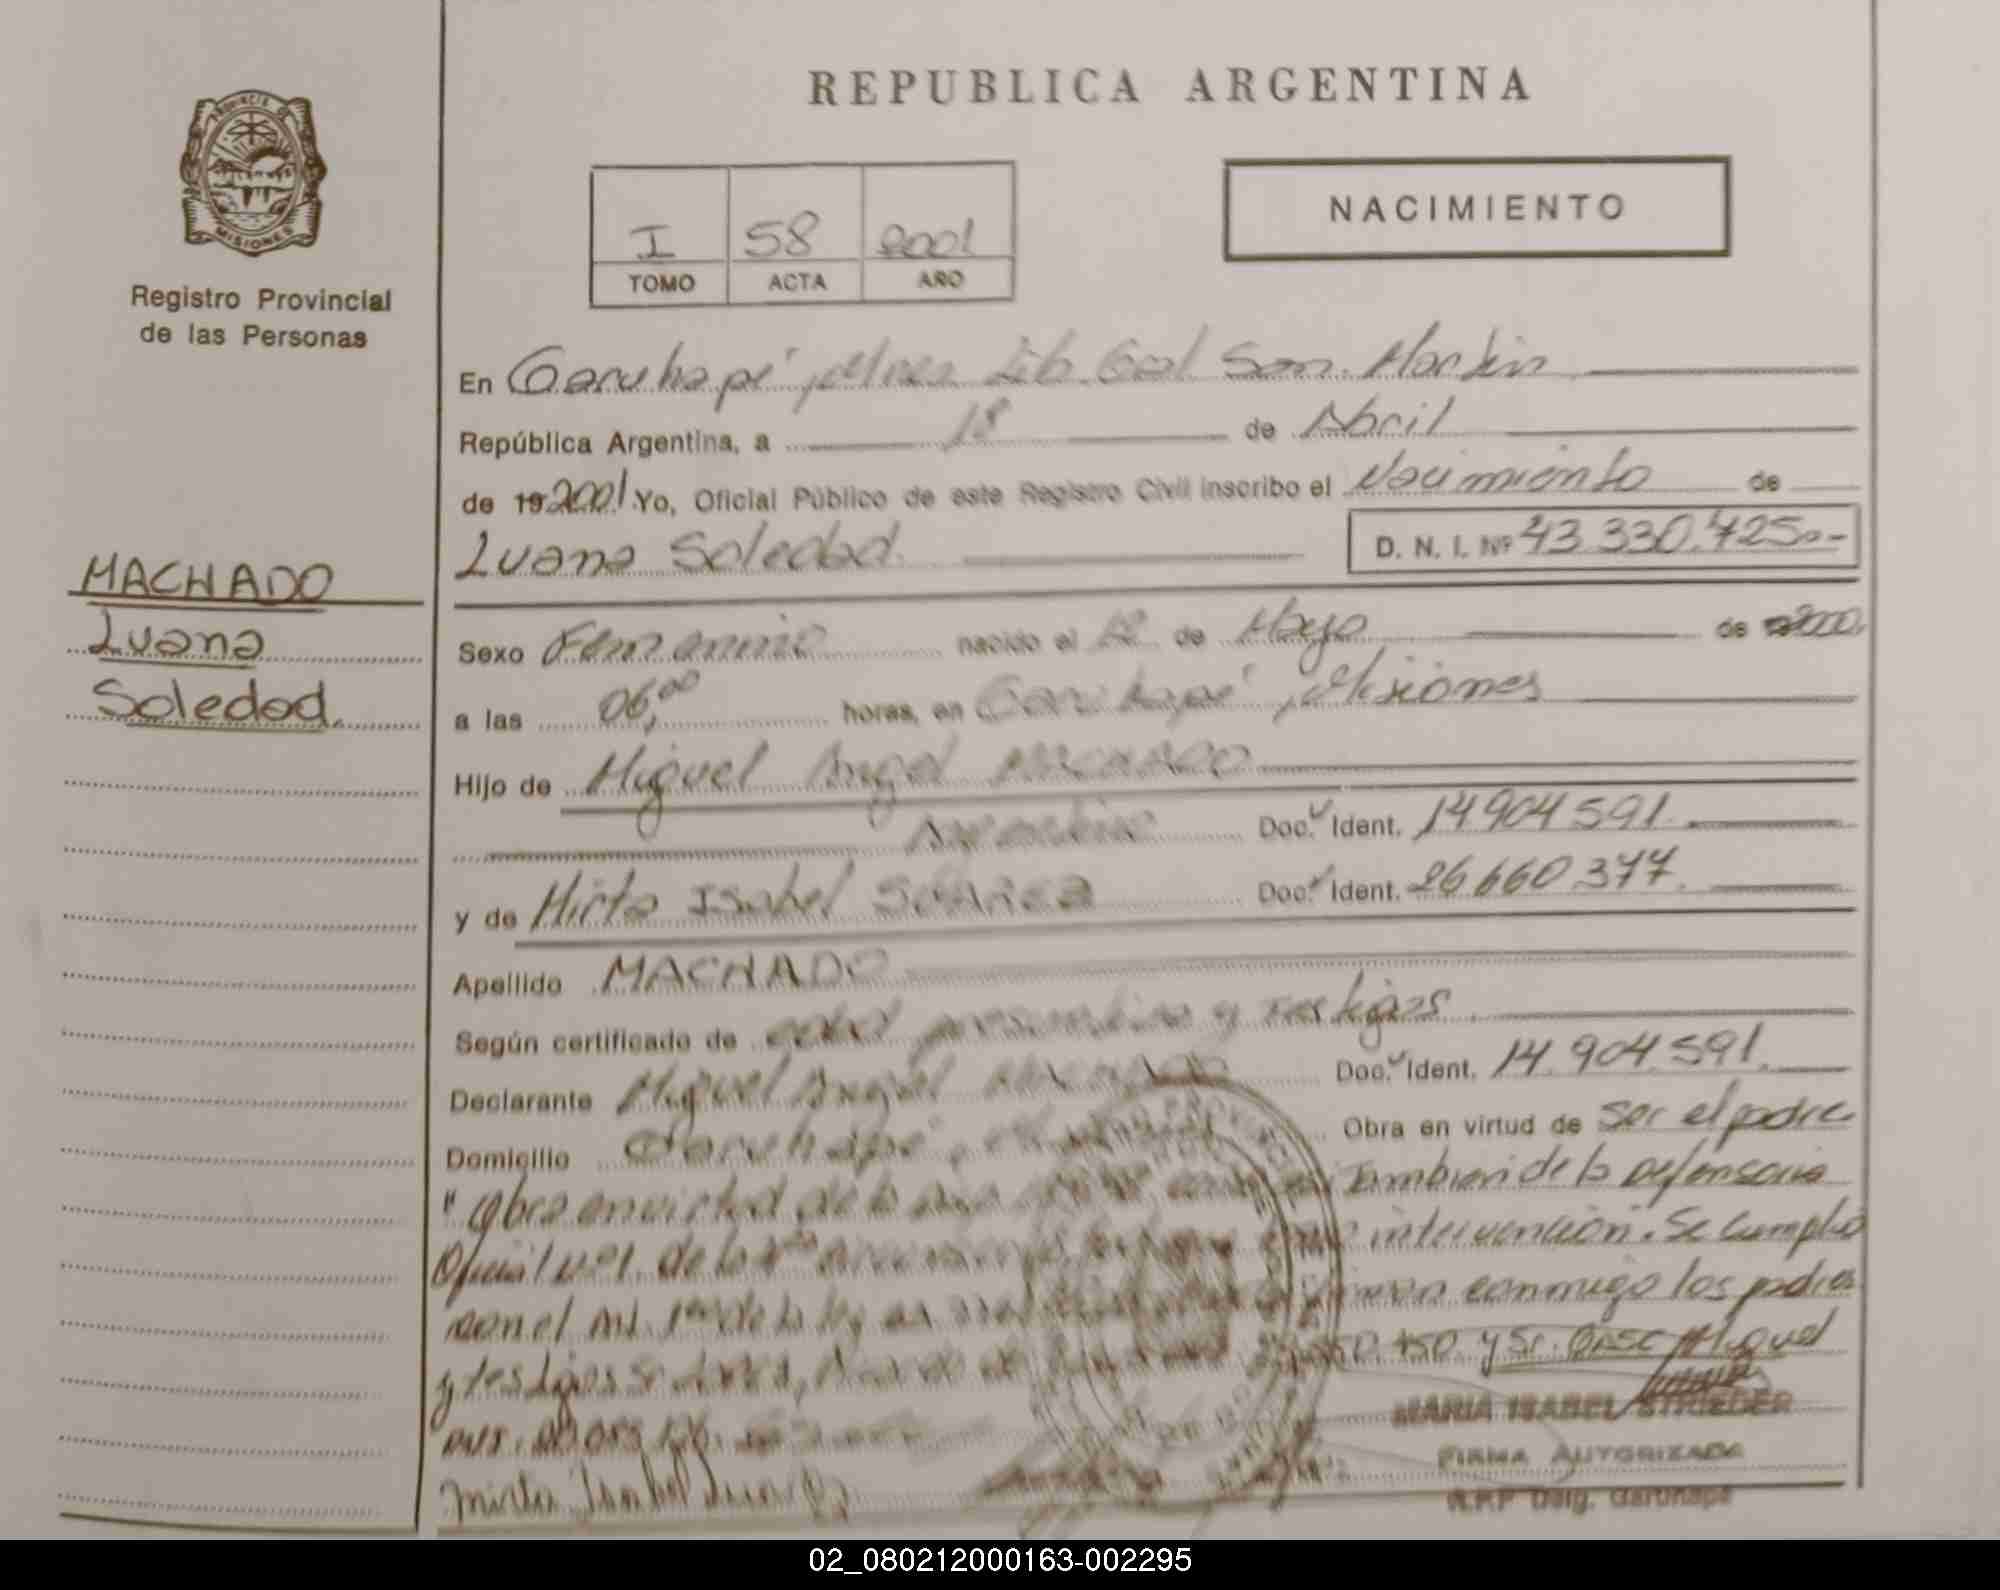 REPUBLICA ARGENTINA
PROVINCIA DE
MISIONES
Registro Provincial
de las Personas
I 58 2001
TOMO ACTA AÑO
NACIMIENTO
En Garuhapé, Mnes Lib. Gral San Martin
República Argentina, a 18 de Abril
de 19 2001 Yo, Oficial Público de este Registro Civil inscribo el Nacimiento de
Luana Soledad. D. N. I. Nº 43.330.425.-
MACHADO
Luana
Soledad.
Sexo Femenino nacido el 12 de Mayo de 2000.
a las 06,00 horas, en Garuhapé, Misiones
Hijo de Miguel Angel MACHADO
Argentino Doc. Ident. 14904591.
y de Mirta Isabel Doc. Ident. 26660377.
Apellido MACHADO
Según certificado de edad presuntiva y testigos.
Declarante Miguel Angel MACHADO Doc. Ident. 14.904.591.
Domicilio Garuhapé, Obra en virtud de Ser el padre
" Obra en virtud de la Tambien de la Defensoria
Oficial de la intervención. Se cumplió
con el de la ley conmigo los padres
y testigos y Sr. Miguel
MARIA ISABEL STRIEDER
FIRMA AUTORIZADA
Mirta Isabel
R.P.P Delg. Garuhapé
02_080212000163-002295